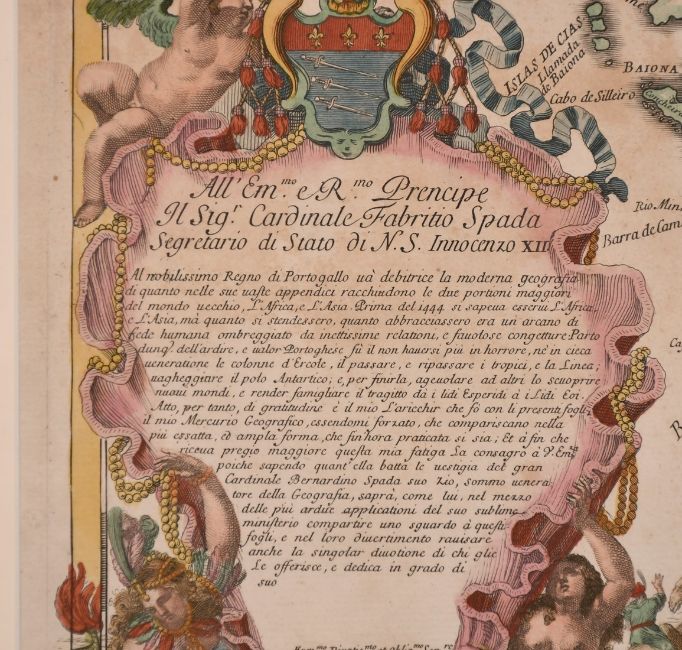 ISLAS DE CIAS
Llamada
de Baiona
BAIONA
Cabo de Silleiro
Rio Min
Barra de Cam
All' Em.mo e R.mo Prencipe
Il Sig.r Cardinale Fabritio Spada
Segretario di Stato di N.S. Innocenzo XII
Al nobilissimo Regno di Portogallo uà debitrice la moderna geografia
di quanto nelle sue uaste appendici racchiudono le due portioni maggiori
del mondo uecchio, L'Africa, e L'Asia. Prima del 1444 si sapeua esserui L'Africa,
e L'Asia, mà quanto si stendessero, quanto abbracciassero era un arcano di
fede humana ombreggiato da inettissime relationi, e fauolose congetture. Parto
dunq. dell'ardire, e ualor Portoghese fù il non hauersi piu in horrore, nè in cieca
ueneratione le colonne d'Ercole, il passare, e ripassare i tropici, e la Linea;
uagheggiare il polo Antartico; e, per finirla, ageuolare ad altri lo scuoprire
nuoui mondi, e render famigliare il tragitto da i lidi Esperidi à i Lidi Eoi.
Atto, per tanto, di gratitudine è il mio L'aricchir che fò con li presenti fogli
il mio Mercurio Geografico, essendomi forzato, che compariscano nella
più essatta, ed ampla forma, che fin'hora praticata si sia; Et à fin che
riceua pregio maggiore questa mia fatiga La consagrò à V. Em.za
poiche sapendo quant'ella battà le uestigia del gran
Cardinale Bernardino Spada suo Zio, sommo uenera
tore della Geografia, saprà, come lui, nel mezzo
delle più ardue applicationi del suo sublime
ministerio compartire uno sguardo à questi
fogli, e nel loro diuertimento rauisare
anche la singolar diuotione di chi glie
Le offerisce, e dedica in grado di
suo